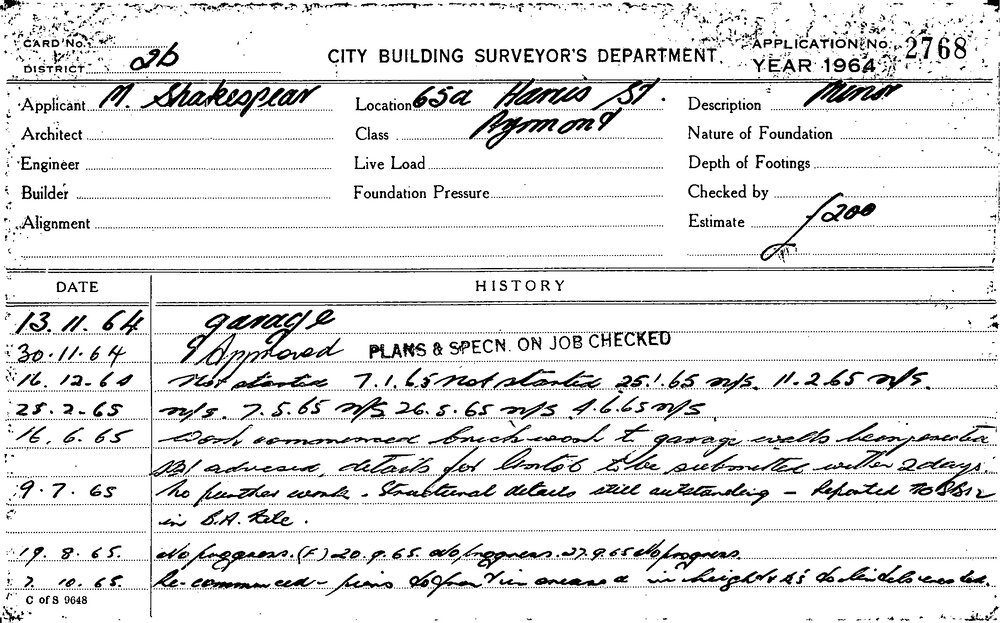 CARD No.
DISTRICT 2b
CITY BUILDING SURVEYOR'S DEPARTMENT
APPLICATION No. 2768
YEAR 1964
Applicant M. Shakespear Location 65a Harris St. Description Minor
Architect Class Pyrmont Nature of Foundation
Engineer Live Load Depth of Footings
Builder Foundation Pressure Checked by
Alignment Estimate £200
DATE HISTORY
13.11.64 garage
30.11.64 Approved PLANS & SPECN. ON JOB CHECKED
16.12.64 Not started 7.1.65 not started 25.1.65 n/s. 11.2.65 n/s.
25.2.65 n/s. 7.5.65 n/s 26.5.65 n/s 4.6.65 n/s
16.6.65 Work commenced brickwork to garage walls being erected
advised, details for lintols to be submitted within 2 days.
9.7.65 No further work - Structural details still outstanding - Reported to
in B.A. File.
19.8.65. No progress. (F) 20.9.65 No progress. 27.9.65 No progress.
7.10.65. Re-commenced - piers to front increased in height
C of S 9648